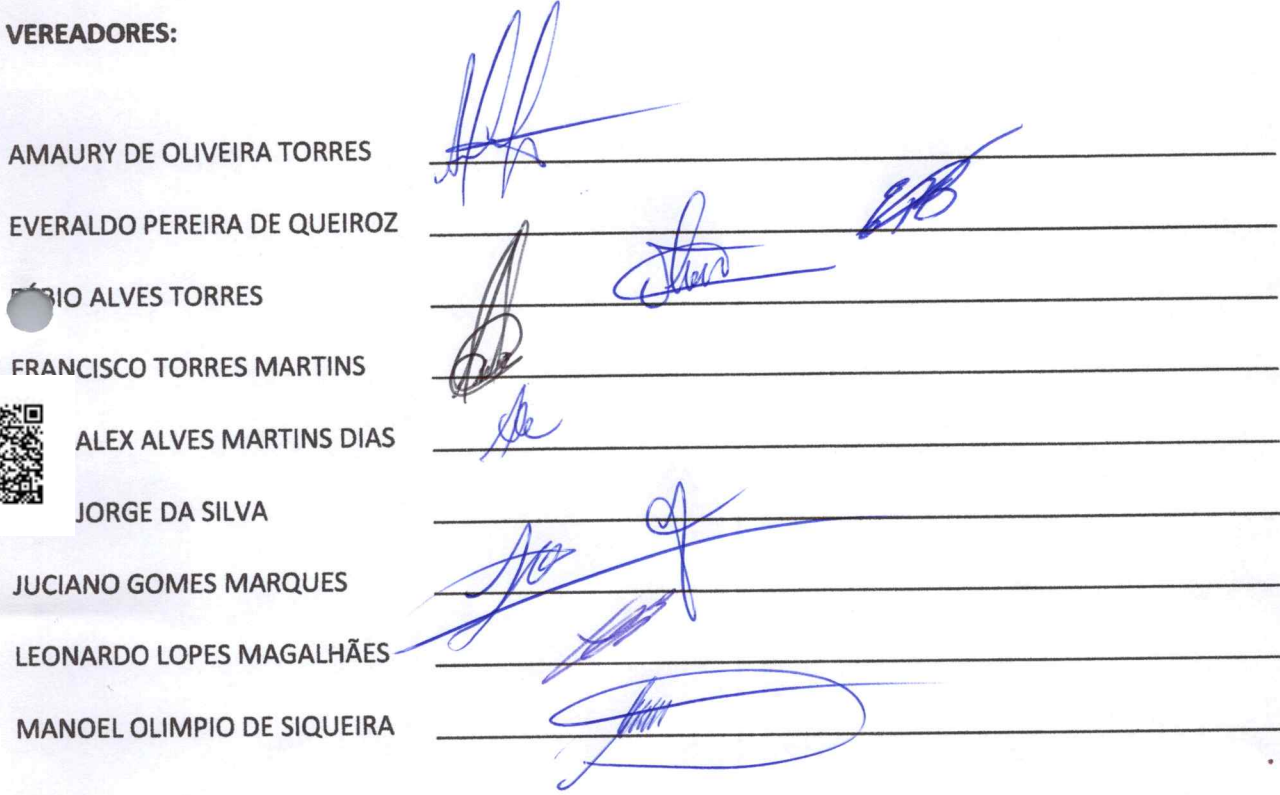 VEREADORES:
AMAURY DE OLIVEIRA TORRES
EVERALDO PEREIRA DE QUEIROZ
ALVES TORRES
FRANCISCO TORRES MARTINS
ALEX ALVES MARTINS DIAS
JORGE DA SILVA
JUCIANO GOMES MARQUES
LEONARDO LOPES MAGALHÃES
MANOEL OLIMPIO DE SIQUEIRA